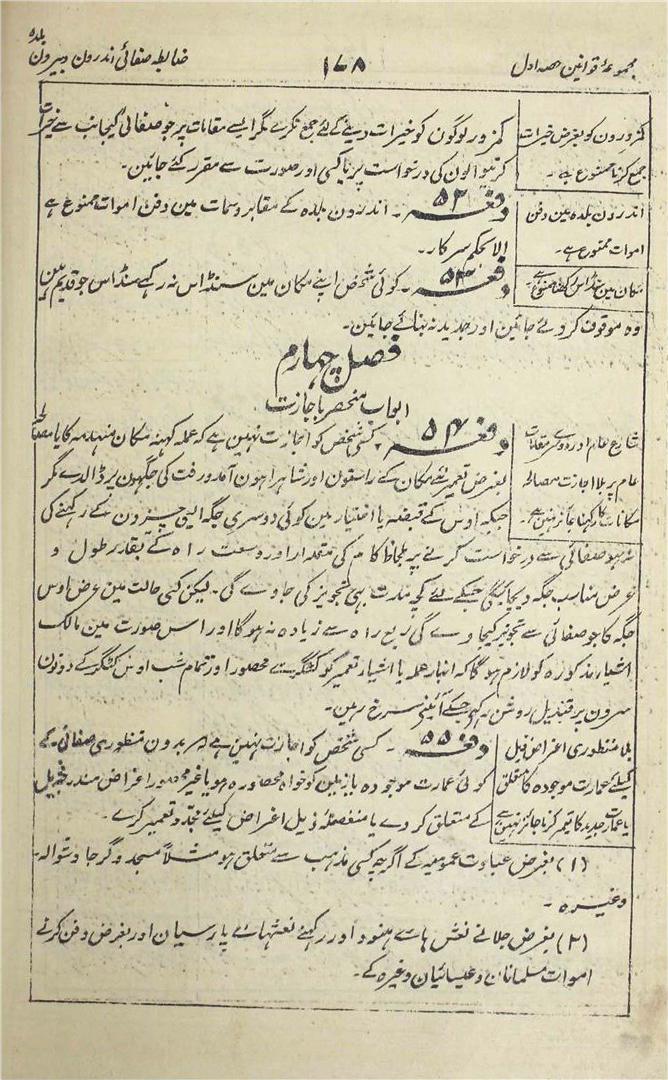 مجموعۂ قوانین حصہ اول
۱۶۸
ضابطہ صفائی اندرون و بیرون
بلدہ
کمزورون کو بغرض خیرات
جمع کرنا ممنوع ہے۔
کمزور لوگون کو خیرات دینے کے لئے جمع نکرے مگر ایسے مقامات پر جو صفائی کیجانب سے خیرات
کرنیوالون کی درخواست پر یا کسی اور صورت سے مقرر کئے جائین۔
اندرون بلدہ مین دفن
اموات ممنوع ہے۔
دفعہ ۵۲ ۔ اندرون بلدہ کے مقابر و سمات مین دفن اموات ممنوع ہے
الا بحکم سرکار۔
مکان مین سنڈاس رکھنا ممنوع ہے۔
دفعہ ۵۳ ۔ کوئی شخص اپنے مکان مین سنڈاس نہ رکھے سنڈاس جو قدیم ہین
وہ موقوف کردئے جائین اور جدید نہ بنائے جائین۔
فصل چہارم
ابواب منحصر باجازت
شارع عام اور دوسرے مقامات
عام پر بلا اجازت مصالحہ
مکانات کا رکھنا جائز نہین ہے۔
دفعہ ۵۴ ۔ کسی شخص کو اجازت نہین ہے کہ عملہ کہنہ مکان منہدمہ کا یا مصالحہ
بغرض تعمیر نئے مکان کے راستون اور شاہراہون آمد و رفت کی جگہون پر ڈالدے مگر
جبکہ اوس کے قبضہ یا اختیار مین کوئی دوسری جگہ ایسی چیزون کے رکھنے کی
نہ ہو صفائی سے درخواست کرنے پر بلحاظ کام کی مقدار اور وسعت راہ کے بقدر طول و
عرض مناسب جگہ دیجائیگی جسکے لئے کچھ مدت بھی تجویز کی جاوے گی۔ لیکن کسی حالت مین عرض اوس
جگہ کا جو صفائی سے تجویز کیجاوے گی ربع راہ سے زیادہ نہ ہوگا اور اس صورت مین مالک
اشیاء مذکورہ کو لازم ہوگا کہ انبار عملہ یا اشیاء تعمیر کو کٹگھرے سے محصور اور تمام شب اوس کٹگھرے کے دونون
سرون پر قندیل روشن رکھے جسکے آئینے سرخ ہون۔
بلا منظوری اغراض ذیل
کیلئے عمارت موجودہ کا متعلق
یا عمارت جدید کا تعمیر کرنا جائز نہین ہے
دفعہ ۵۵ ۔ کسی شخص کو اجازت نہین ہے کہ بدون منظوری صفائی کے
کوئی عمارت موجودہ یا زمین کو خواہ محصورہ ہو یا غیر محصور اغراض مندرجہ ذیل
کے متعلق کردے یا منفصلہ ذیل اغراض کیلئے تعمیر کرے۔
(۱) بغرض عبادت عمومیہ کے اگرچہ کسی مذہب سے متعلق ہو مثلاً مسجد و گرجا و شوالہ
وغیرہ۔
(۲) بغرض جلانے نعش ہائے ہنود اور رکھنے نعشہائے پارسیان اور بغرض دفن کرنے
اموات مسلمانان و عیسائیان وغیرہ کے۔